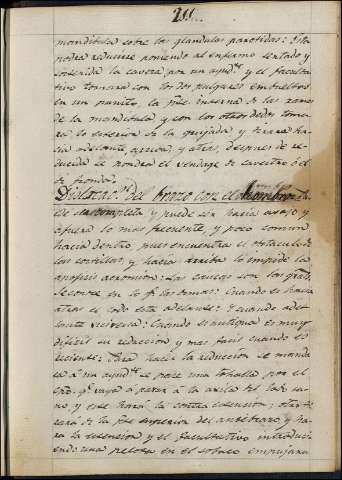 211.
mandibula sobre las glandulas parotidas: Esta
podra reducirse poniendo al enfermo sentado y
sostenida la cavera por un ayud.te y el faculta-
tivo tomara con los dos pulgares embueltos
en un panito, la p.te interna de las ramas
de la mandibula, y con los otros dedos toma-
ra lo exterior de la quijada, y tirara ha-
cia adelante, arriva, y atras, despues de re-
ducida se pondra el vendage de cavestro ó el
de fronda.
Dislocac.n del brazo con el hombro
completa y puede ser hacia avajo y
afuera lo mas frecuente, y poco comun
hacia dentro, pues encuentra el obstaculo de
las costillas, y hacia arriba lo impide la
apofisis acromion: Las causas son las gral.s
Se conoce en lo q.e las demas: Cuando es hacia
atras el codo esta adelante: Y cuando ade-
lante viceversa: Cuando es antigua es muy
dificil su reduccion y mas facil cuando es
reciente: Para hacer la reduccion se manda-
ra á un ayud.te se pase una tohalla por el
q.e vaya á parar á la axila del lado sa-
no y este hará la contra estension; otro ti-
rará de la p.te inferior del antebrazo y ha-
ra la estension y el facultativo introducie-
endo una pelota en el sobaco empujara